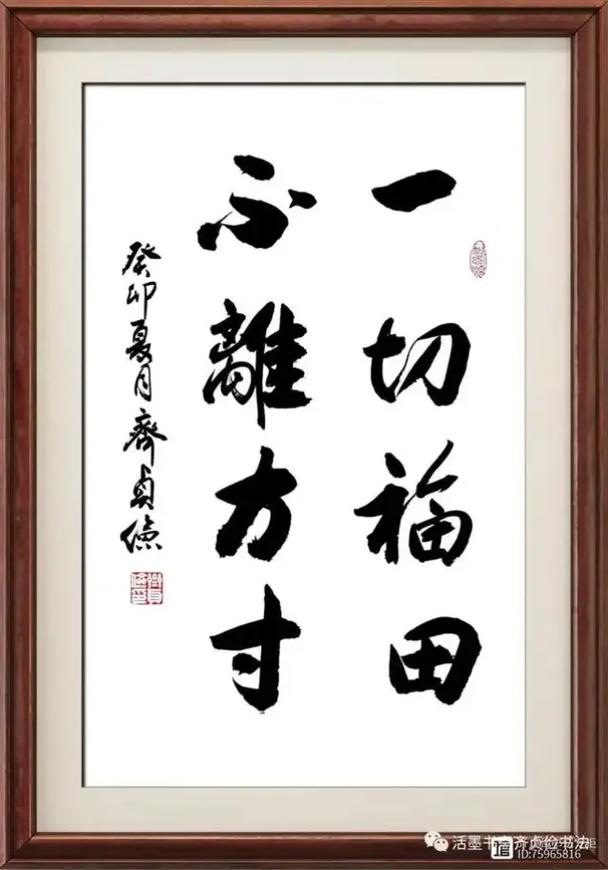 一切福田
不離方寸
癸卯夏月齊貞儉
活墨书斋齐贞俭书法
ID:75965816